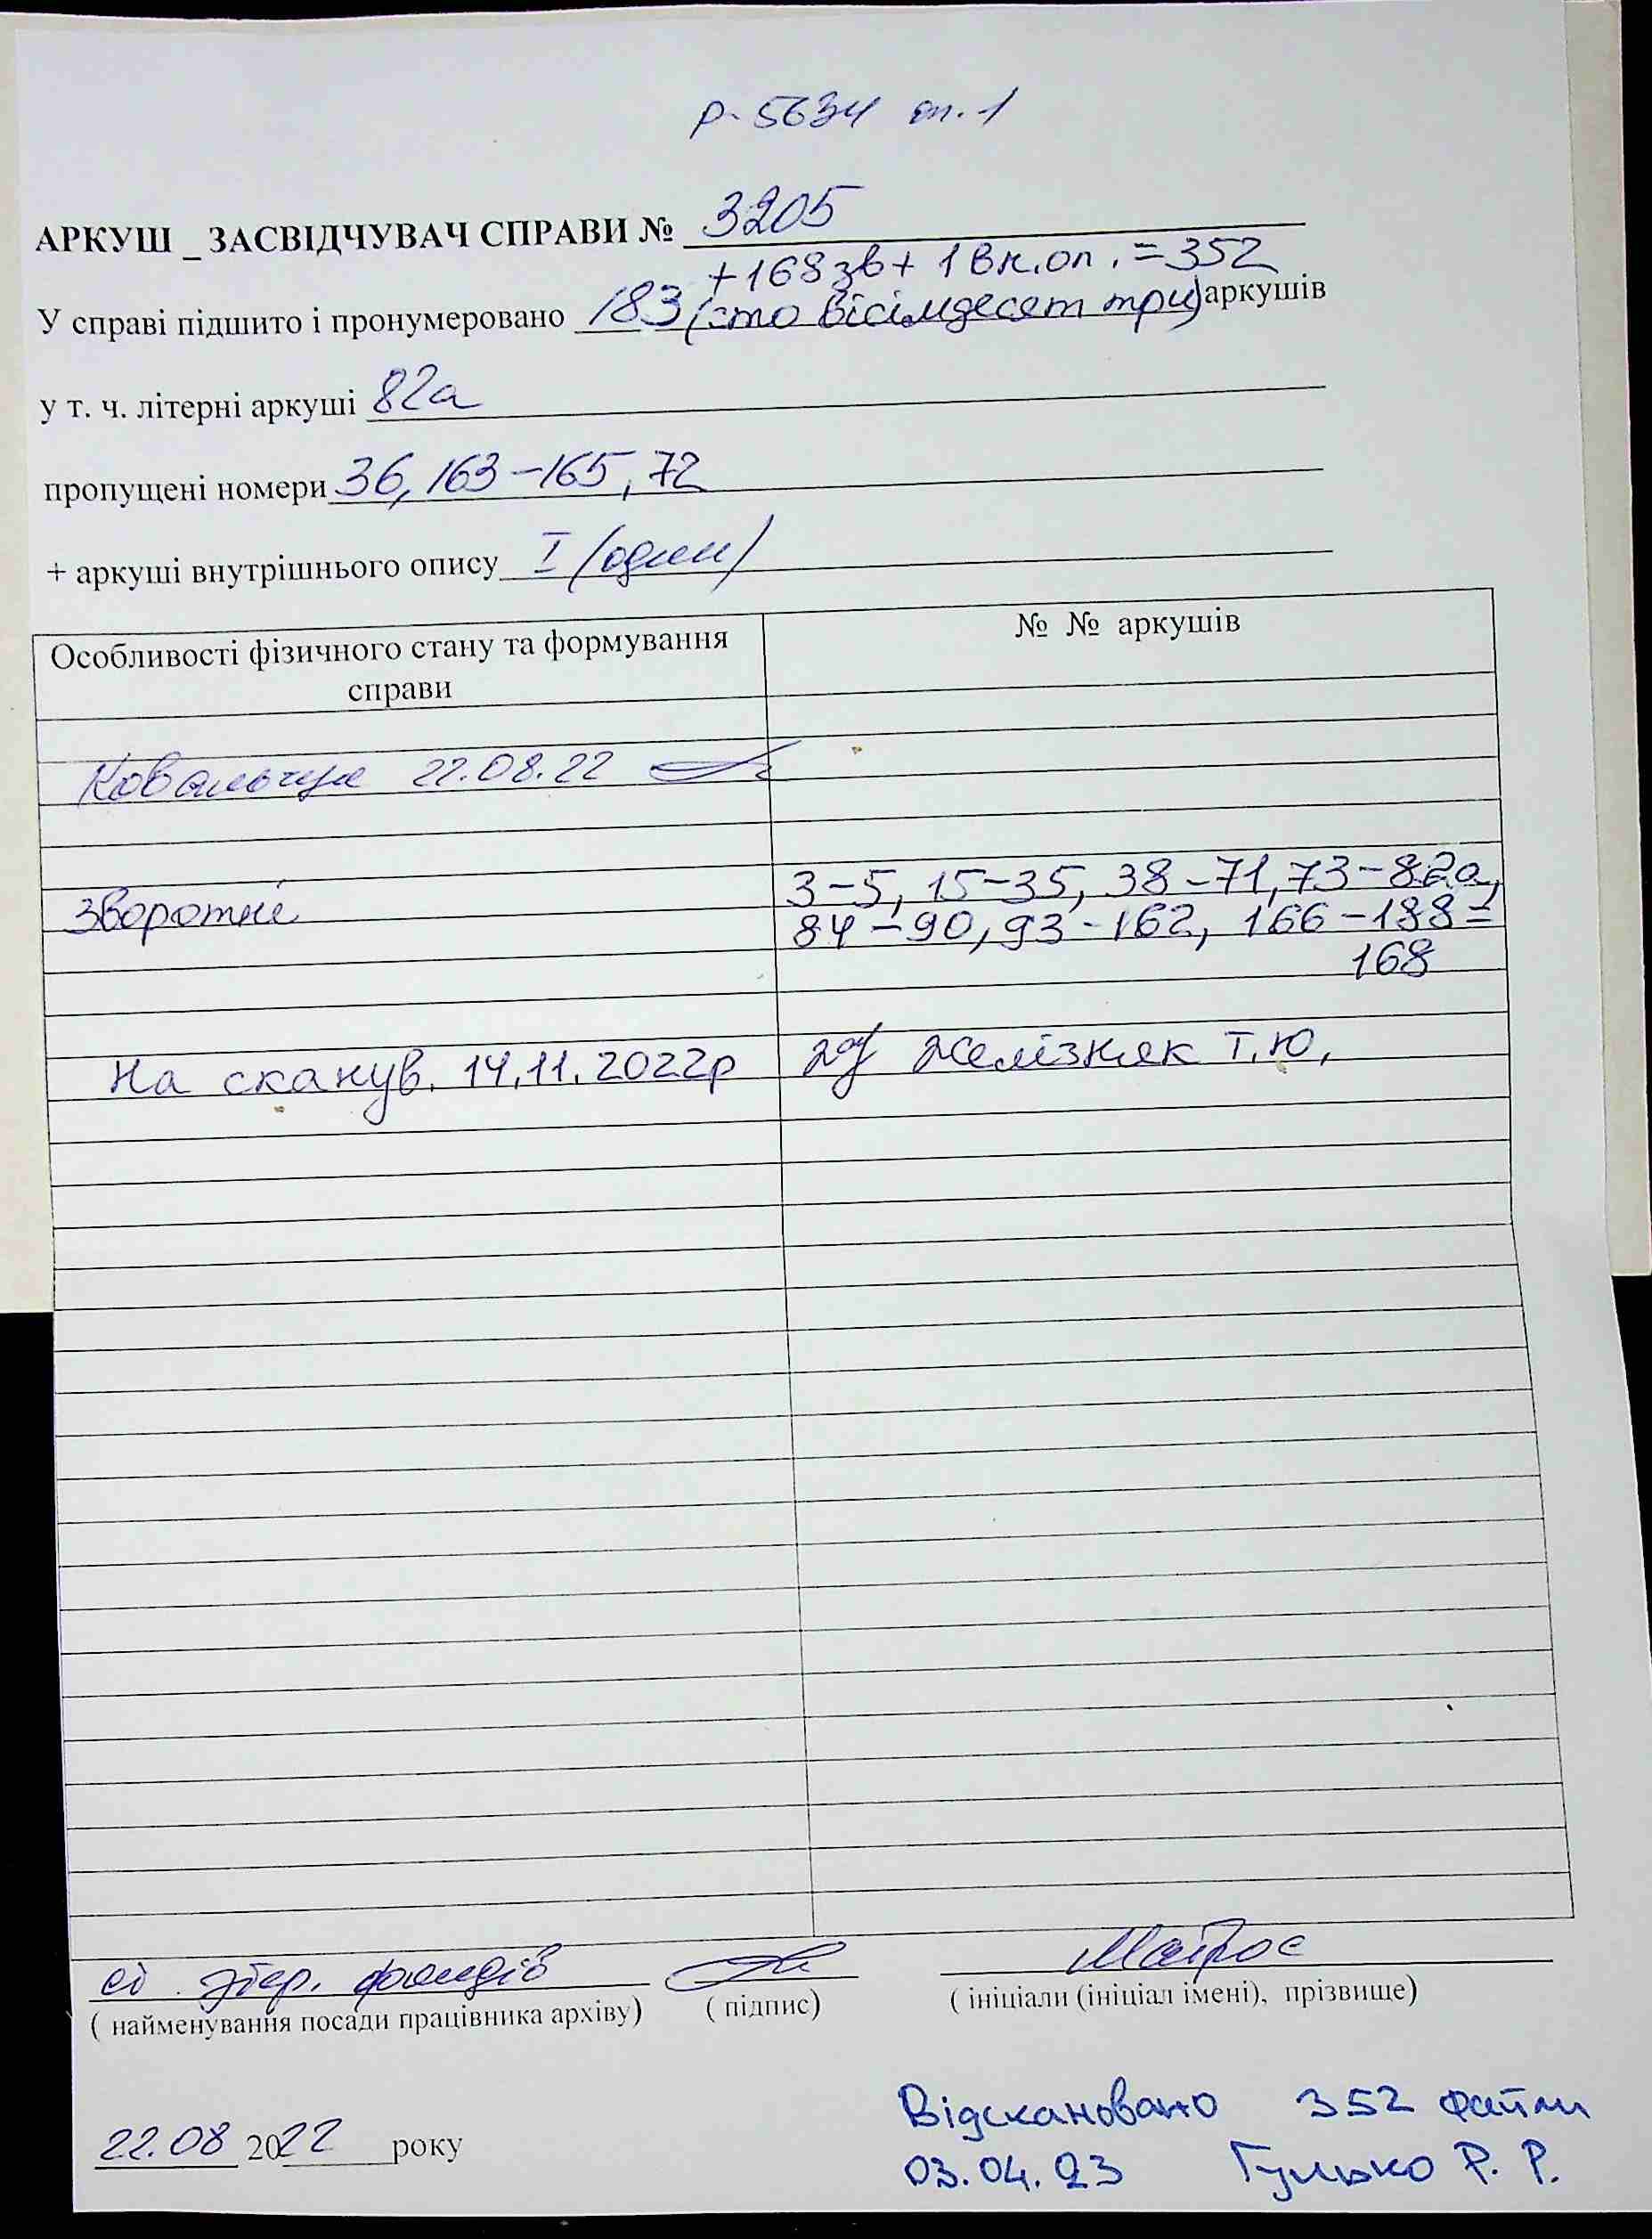 р-5634 оп. 1
АРКУШ _ ЗАСВІДЧУВАЧ СПРАВИ № 3205
+168зв+ 1 вн.оп. =352
У справі підшито і пронумеровано 183 (сто вісімдесят три) аркушів
у т. ч. літерні аркуші 82а
пропущені номери 36, 163-165, 72
+ аркуші внутрішнього опису I (один)
Особливості фізичного стану та формування справи
№ № аркушів
Ковальчук 22.08.22
Зворотні
3-5, 15-35, 38-71, 73-82а,
84-90, 93-162, 166-188=
168
На сканув. 14.11.2022р
Желізняк Т.Ю.
збер. фондів
Матрос
( найменування посади працівника архіву) ( підпис) ( ініціали (ініціал імені), прізвище)
22.08 2022 року
Відскановано 352 файли
03.04.23 Гулько Р. Р.